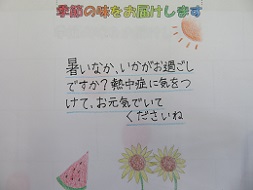 季節の味をお届けします
暑いなか、いかがお過ごし
ですか?熱中症に気をつ
けて、お元気でいて
くださいね